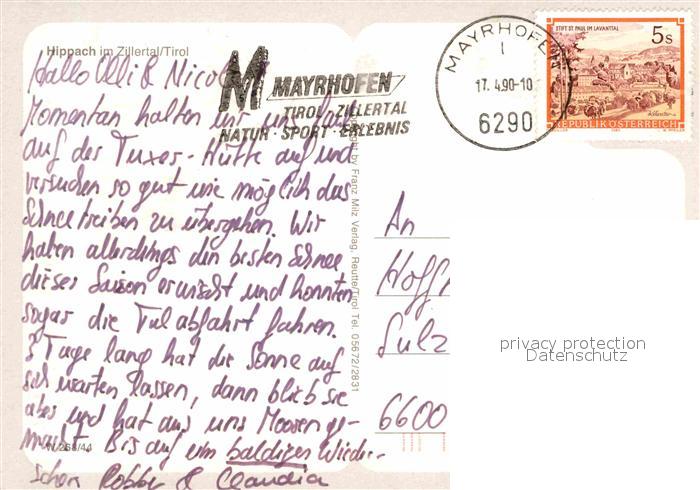 Hippach im Zillertal/Tirol
Hallo Olli & Nicol
Momentan halten wir uns
auf der Tuxer-Hütte auf und
versuchen so gut wie möglich das
Schneetreiben zu übergehen. Wir
haben allerdings den besten Schnee
dieser Saison erwischt und konnten
sogar die Talabfahrt fahren.
3 Tage lang hat die Sonne auf
sich warten lassen, dann blieb sie
aber und hat aus uns Mooren ge-
macht. Bis auf ein baldiges Wieder-
sehen Robby & Claudia
M MAYRHOFEN
TIROL · ZILLERTAL
NATUR · SPORT · ERLEBNIS
MAYRHOFEN
1
17. 4.90-10
6290
STIFT ST. PAUL IM LAVANTTAL
5s
REPUBLIK ÖSTERREICH
by Franz Milz Verlag, Reutte/Tirol Tel. 05672/2831
An
Hoff
Sulz
6600
privacy protection
Datenschutz